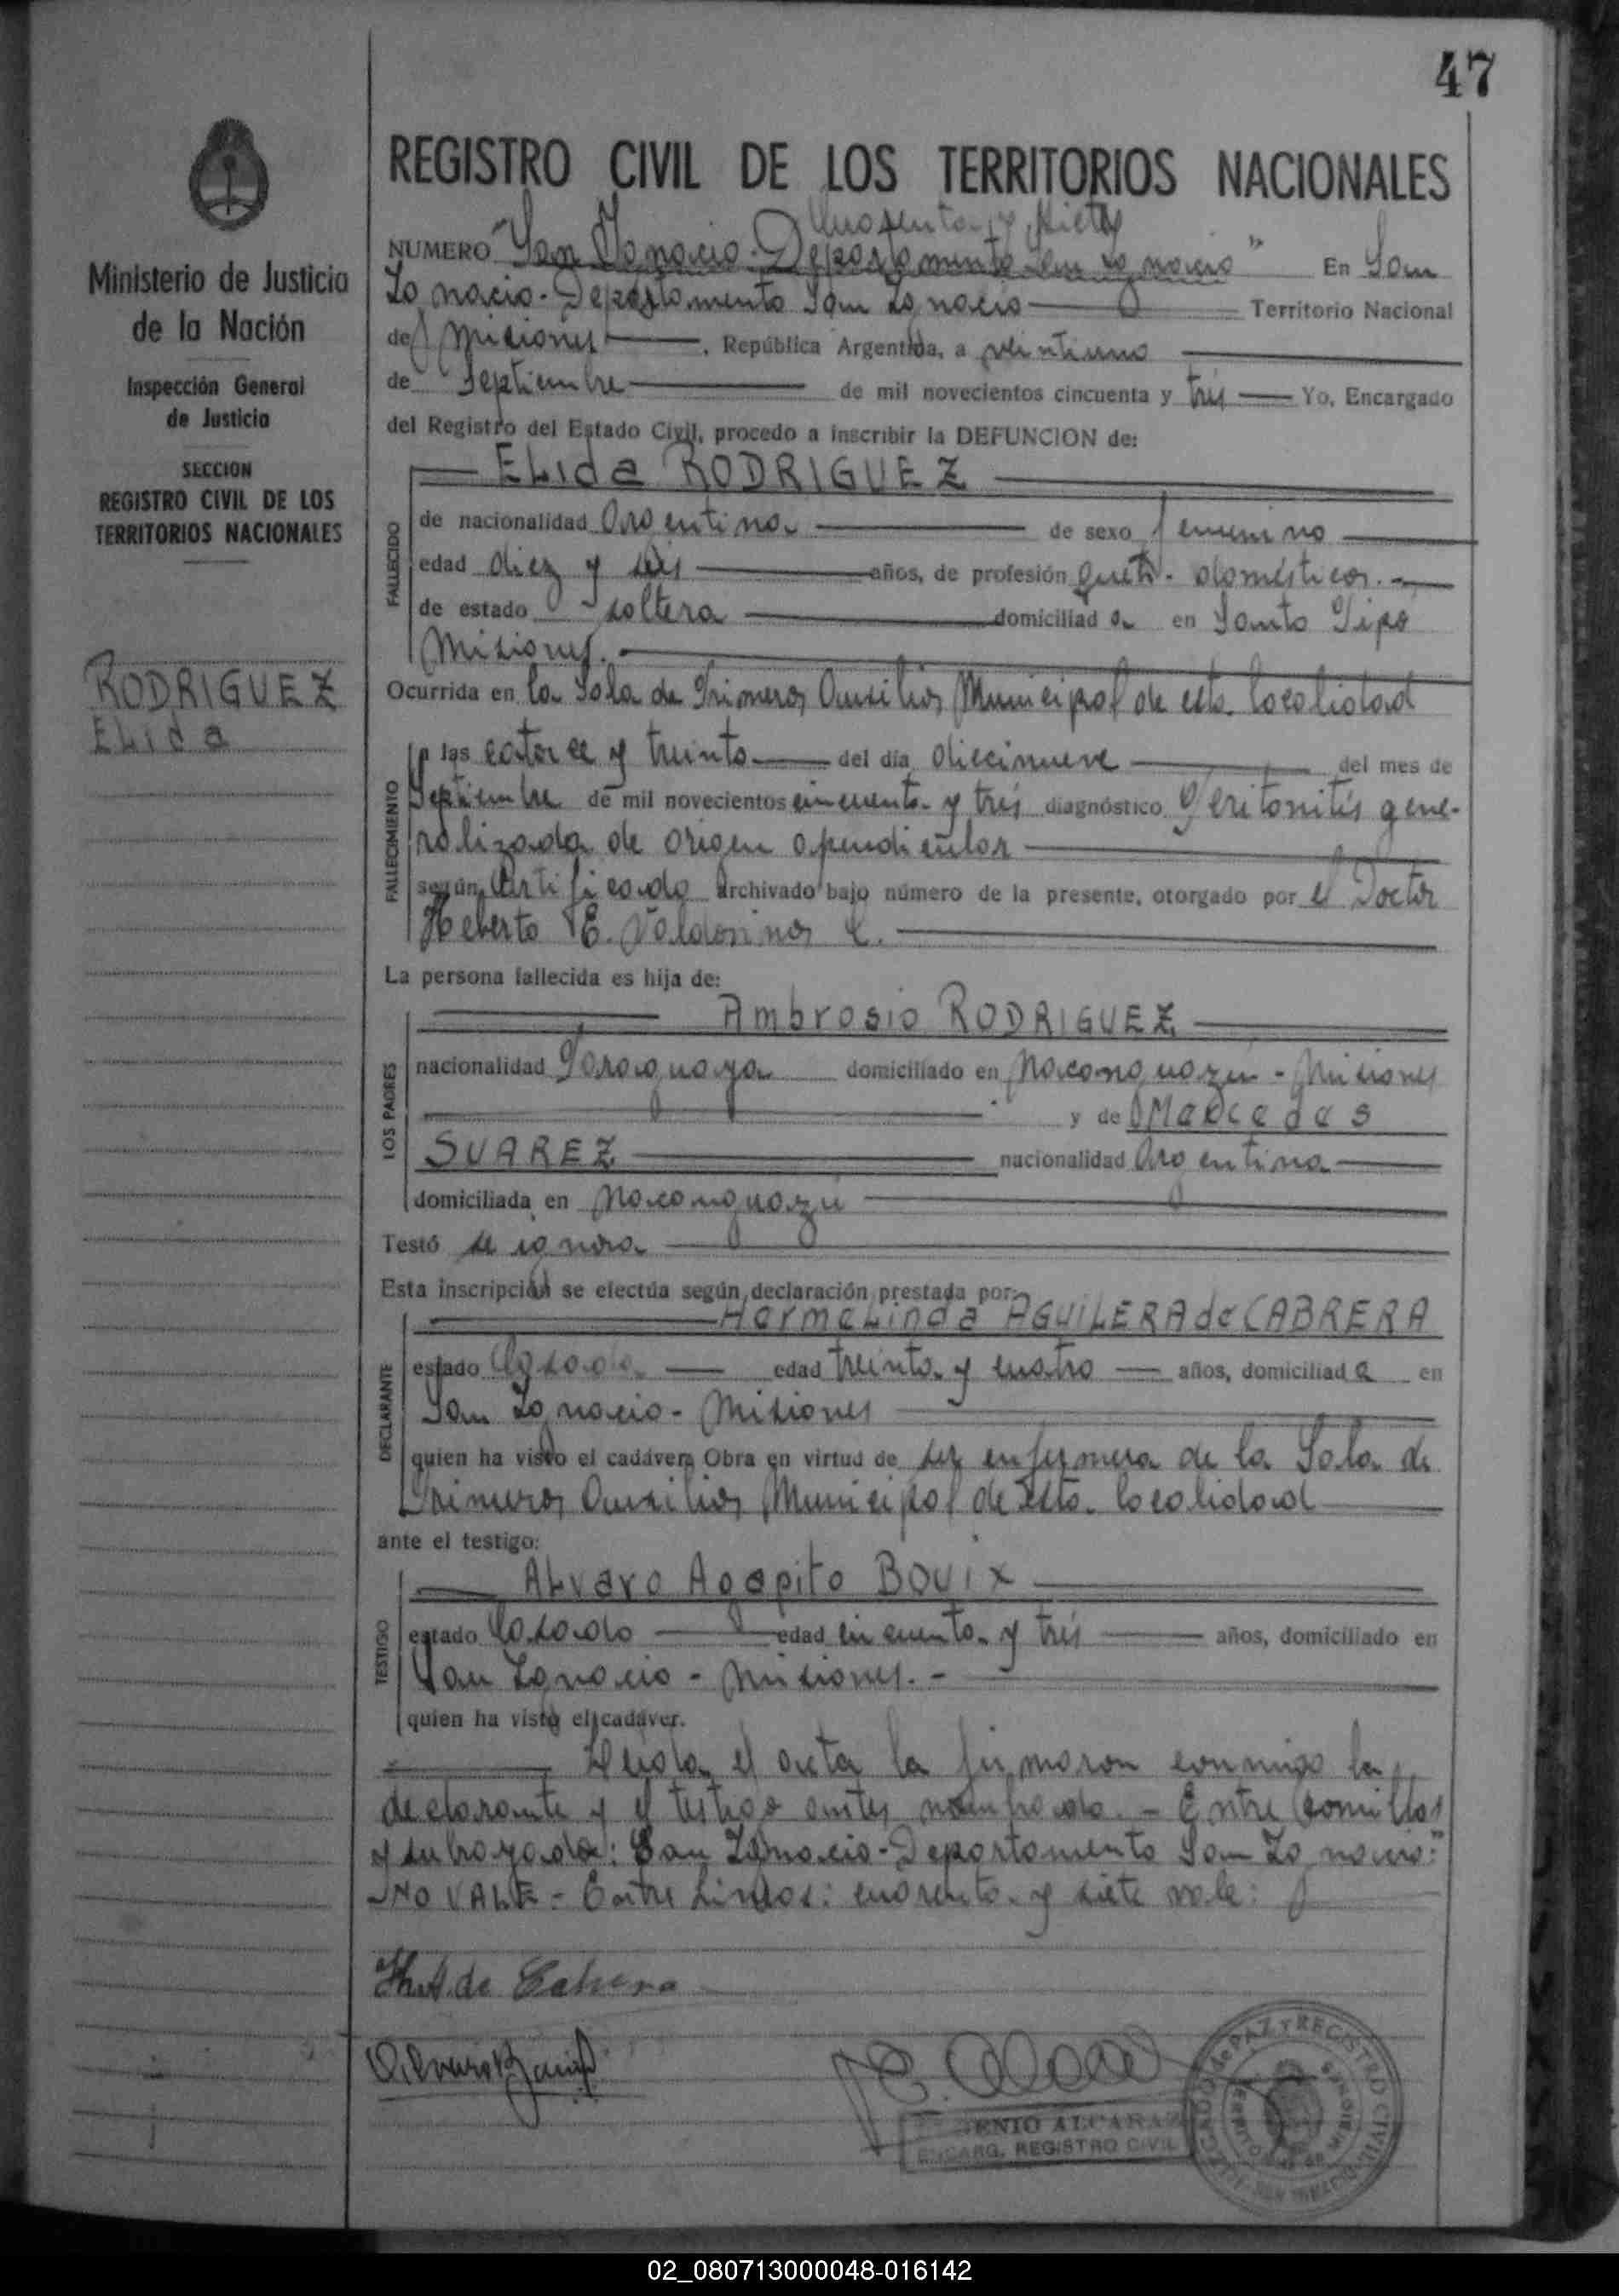 47
Ministerio de Justicia
de la Nación
Inspección General
de Justicia
SECCION
REGISTRO CIVIL DE LOS
TERRITORIOS NACIONALES
RODRIGUEZ
ELida
REGISTRO CIVIL DE LOS TERRITORIOS NACIONALES
Cuarenta y siete
NUMERO "San Ignacio - Departamento San Ignacio" En San
Ignacio - Departamento San Ignacio Territorio Nacional
de Misiones, República Argentina, a veintiuno
de Septiembre de mil novecientos cincuenta y tres Yo, Encargado
del Registro del Estado Civil, procedo a inscribir la DEFUNCION de:
ELida RODRIGUEZ
FALLECIDO
de nacionalidad Argentina de sexo femenino
edad diez y seis años, de profesión domésticos.-
de estado soltera domiciliad a en Santo Pipó
Misiones.
Ocurrida en la Sala de Primeros Auxilios Municipal de esta localidad
FALLECIMIENTO
a las catorce y treinta del día diecinueve del mes de
Septiembre de mil novecientos cincuenta y tres diagnóstico Peritonitis gene-
ralizada de origen apendicular
según Certificado archivado bajo número de la presente, otorgado por el Doctor
Heberto E. C.
La persona fallecida es hija de:
LOS PADRES
Ambrosio RODRIGUEZ
nacionalidad Paraguaya domiciliado en Ñacanguazú - Misiones
y de Mercedes
SUAREZ nacionalidad Argentina
domiciliada en Ñacanguazú
Testó se ignora
Esta inscripción se efectúa según declaración prestada por:
DECLARANTE
HermeLinda AGUILERA de CABRERA
estado Casada edad treinta y cuatro años, domiciliad a en
San Ignacio - Misiones
quien ha visto el cadáver. Obra en virtud de ser enfermera de la Sala de
Primeros Auxilios Municipal de esta localidad
ante el testigo:
TESTIGO
ALvaro Agapito BOUIX
estado Casado edad cincuenta y tres años, domiciliado en
San Ignacio - Misiones.-
quien ha visto el cadáver.
Leida el acta la firmaron conmigo la
declarante y el testigo antes nombrado.- Entre comillas
y subrayado: "San Ignacio - Departamento San Ignacio:"
NO VALE - Entre Lineas: cuarenta y siete vale:
H. A. de Cabrera
ENIO ALCARAZ
ENCARG. REGISTRO CIVIL
DE PAZ Y REGISTRO CIVIL
02_080713000048-016142